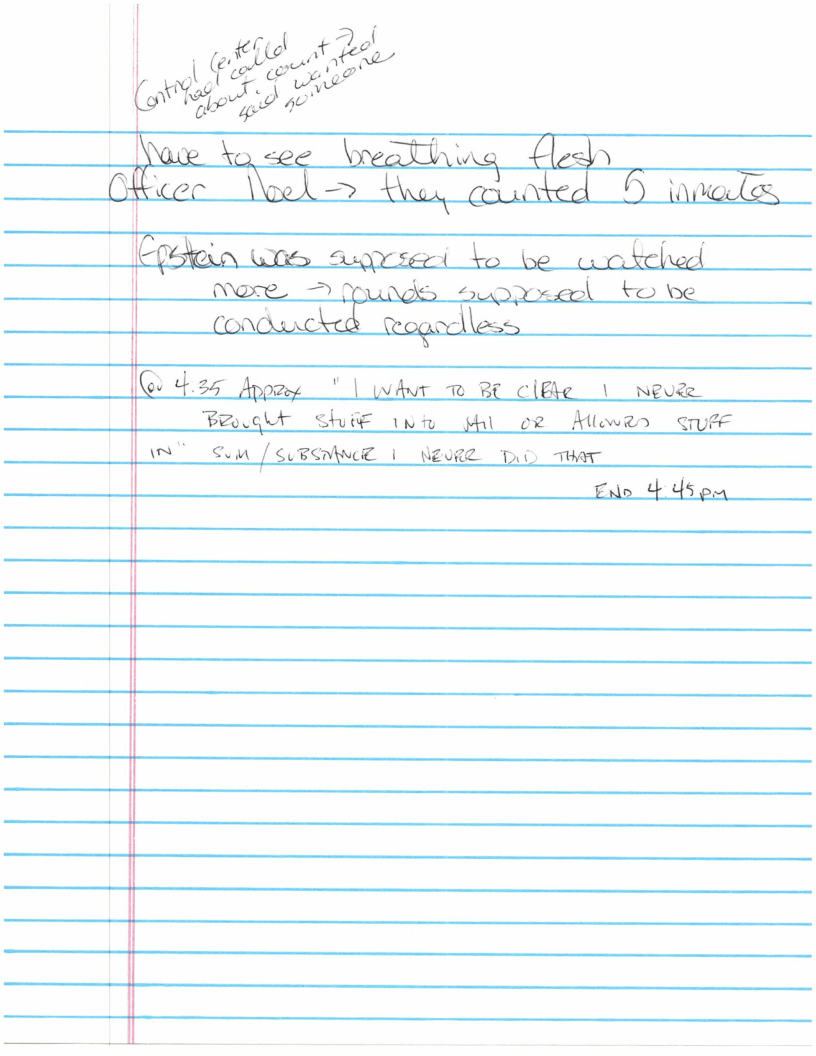 Control Center
had called
about count →
said wanted
someone
have to see breathing flesh
Officer Noel → they counted 5 inmates
Epstein was supposed to be watched
more → rounds supposed to be
conducted regardless
@ 4:35 Approx " I WANT TO BE CLEAR I NEVER
BROUGHT STUFF INTO JAIL OR ALLOWED STUFF
IN " SUM / SUBSTANCE I NEVER DID THAT
END 4:45 PM